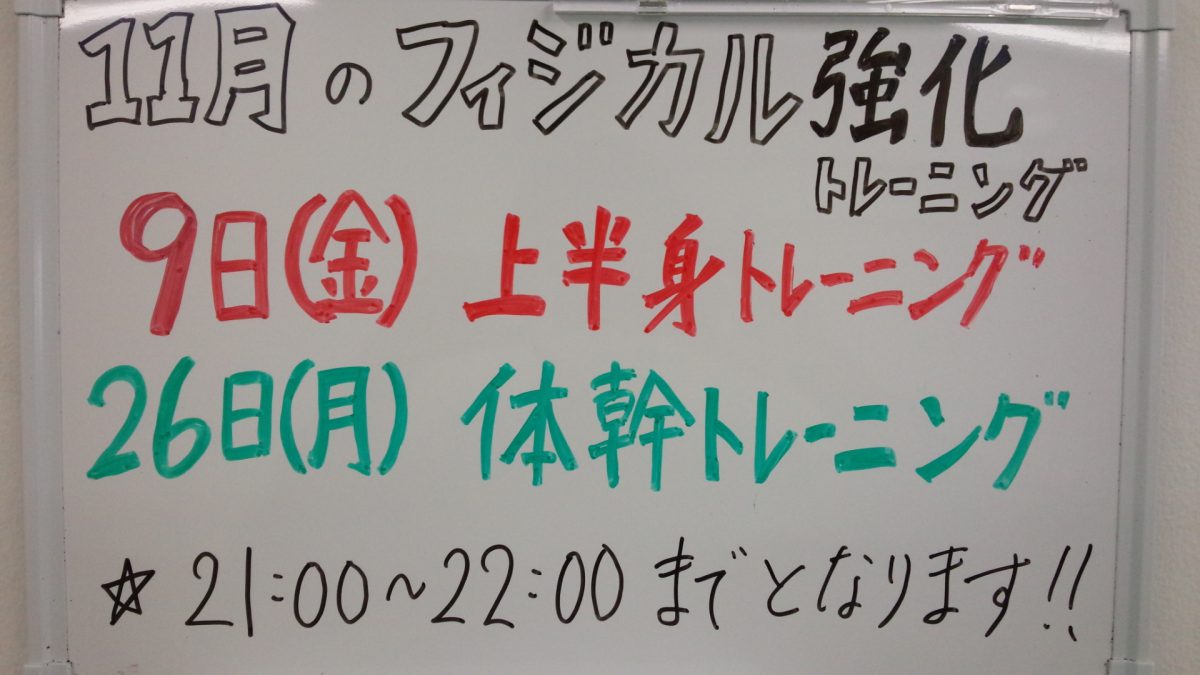 11月のフィジカル強化
トレーニング
9日(金) 上半身トレーニング
26日(月) 体幹トレーニング
☆ 21:00～22:00 までとなります!!